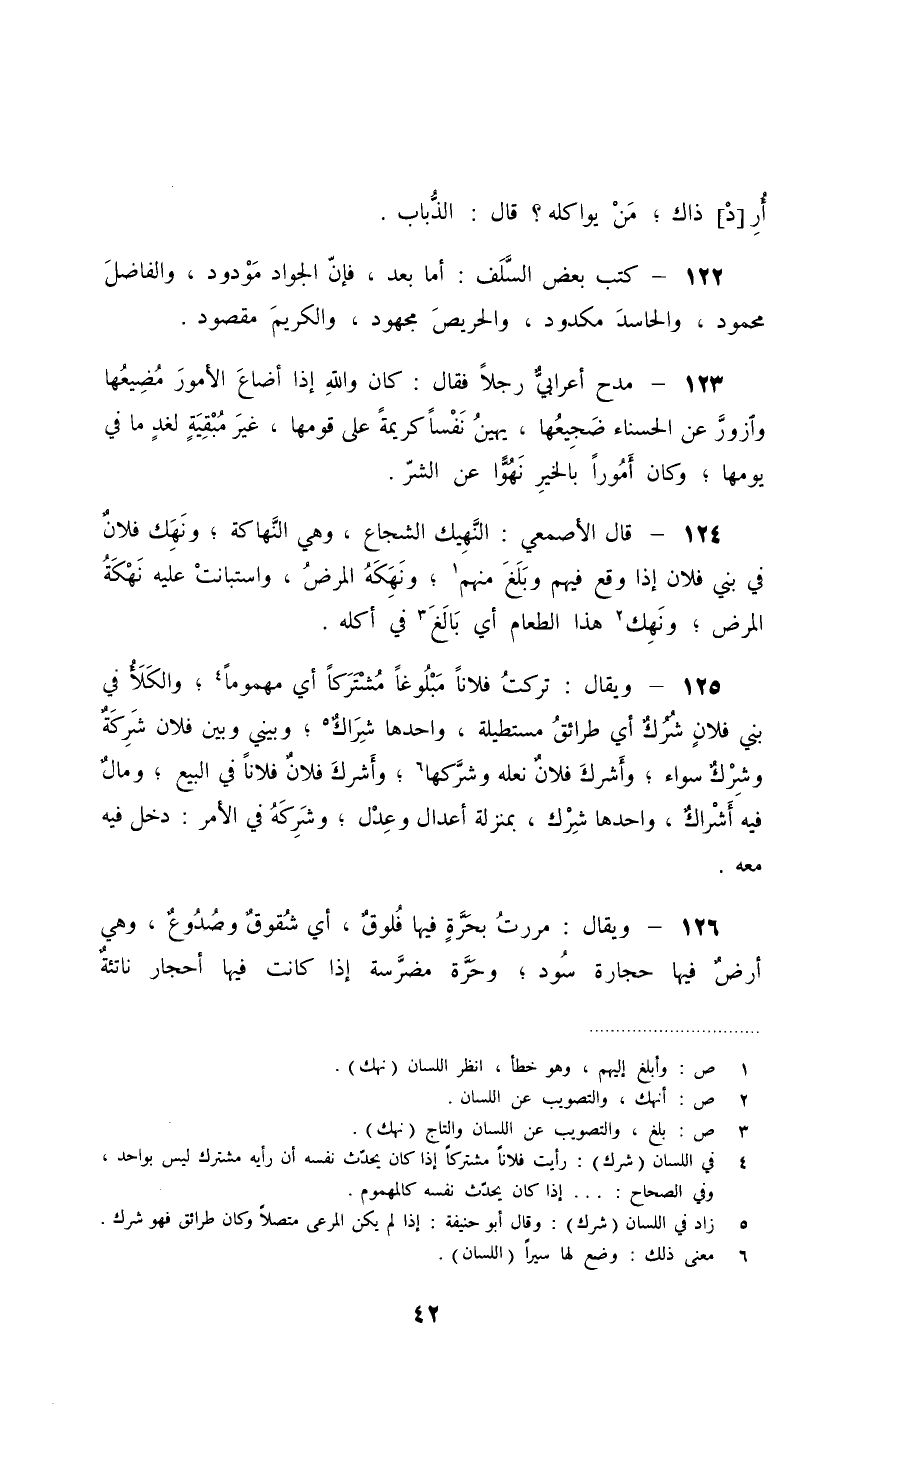 أُرِ [دْ] ذاك ؛ مَنْ يواكله ؟ قال : الذُّباب .
١٢٢ – كتب بعض السَّلَف : أما بعد ، فإنّ الجواد مَوْدود ، والفاضلَ
محمود ، والحاسدَ مكدود ، والحريصَ مجهود ، والكريمَ مقصود .
١٢٣ – مدح أعرابيٌّ رجلاً فقال : كان واللهِ إذا أضاعَ الأمورَ مُضِيعُها
وٱزورَّ عن الحسناء ضَجِيعُها ، يهينُ نَفْساً كريمةً على قومها ، غيرَ مُبْقِيَةٍ لغدٍ ما في
يومها ؛ وكان أَمُوراً بالخيرِ نَهُوًّا عن الشرّ .
١٢٤ – قال الأصمعي : النَّهِيك الشجاع ، وهي النَّهاكة ؛ ونَهَك فلانٌ
في بني فلان إذا وقع فيهم وبَلَغَ منهم١ ؛ ونَهِكَهُ المرضُ ، واستبانتْ عليه نَهْكَةُ
المرض ؛ ونَهِك٢ هذا الطعام أي بَالَغَ٣ في أكله .
١٢٥ – ويقال : تركتُ فلاناً مَبْلُوغاً مُشْتَرَكاً أي مهموماً٤ ؛ والكَلَأُ في
بني فلانٍ شُرُكٌ أي طرائقُ مستطيلة ، واحدها شِرَاكٌ٥ ؛ وبيني وبين فلان شَرِكَةٌ
وشِرْكٌ سواء ؛ وأَشركَ فلانٌ نعله وشرَّكها٦ ؛ وأَشركَ فلانٌ فلاناً في البيع ؛ ومالٌ
فيه أَشْراكٌ ، واحدها شِرْك ، بمنزلة أعدال وعِدْل ؛ وشَرِكَهُ في الأمر : دخل فيه
معه .
١٢٦ – ويقال : مررتُ بحَرَّةٍ فيها فُلوقٌ ، أي شُقوقٌ وصُدُوعٌ ، وهي
أرضٌ فيها حجارة سُود ؛ وحَرَّة مضرَّسة إذا كانت فيها أحجار ناتئةٌ
١ ص : وأبلغ إليهم ، وهو خطأ ، انظر اللسان (نهك) .
٢ ص : أنهك ، والتصويب عن اللسان .
٣ ص : بلغ ، والتصويب عن اللسان والتاج (نهك) .
٤ في اللسان (شرك) : رأيت فلاناً مشتركاً إذا كان يحدّث نفسه أن رأيه مشترك ليس بواحد ،
وفي الصحاح : ... إذا كان يحدّث نفسه كالمهموم .
٥ زاد في اللسان (شرك) : وقال أبو حنيفة : إذا لم يكن المرعى متصلاً وكان طرائق فهو شرك .
٦ معنى ذلك : وضع لها سيراً (اللسان) .
٤٢